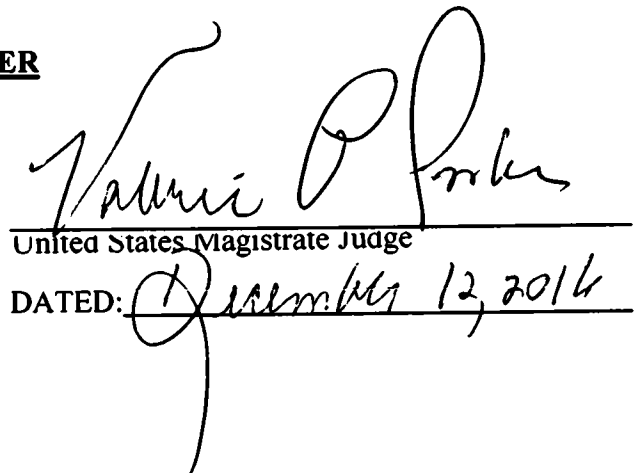 ER
Valerie P Cooke
United States Magistrate Judge
DATED: December 12, 2016